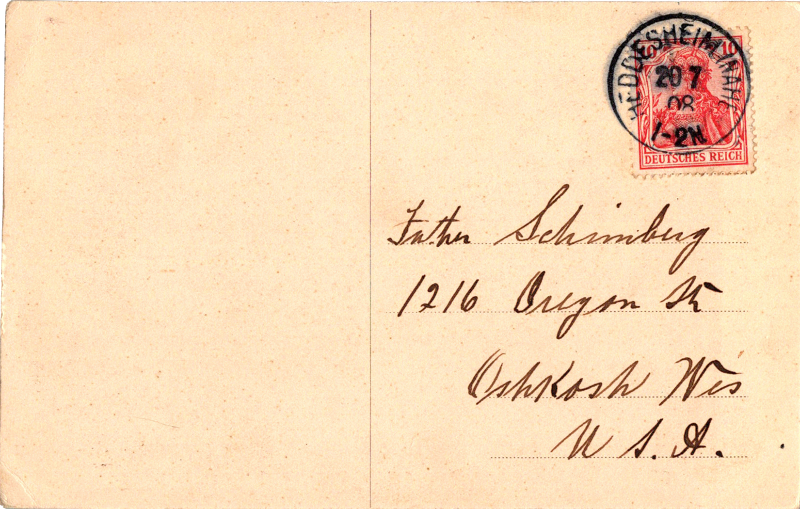 HEDDESHEIM (NAHE)
10 10
20 7
08
1-2N.
DEUTSCHES REICH
Father Schimberg
1216 Oregon St
Oshkosh Wis
U.S.A.